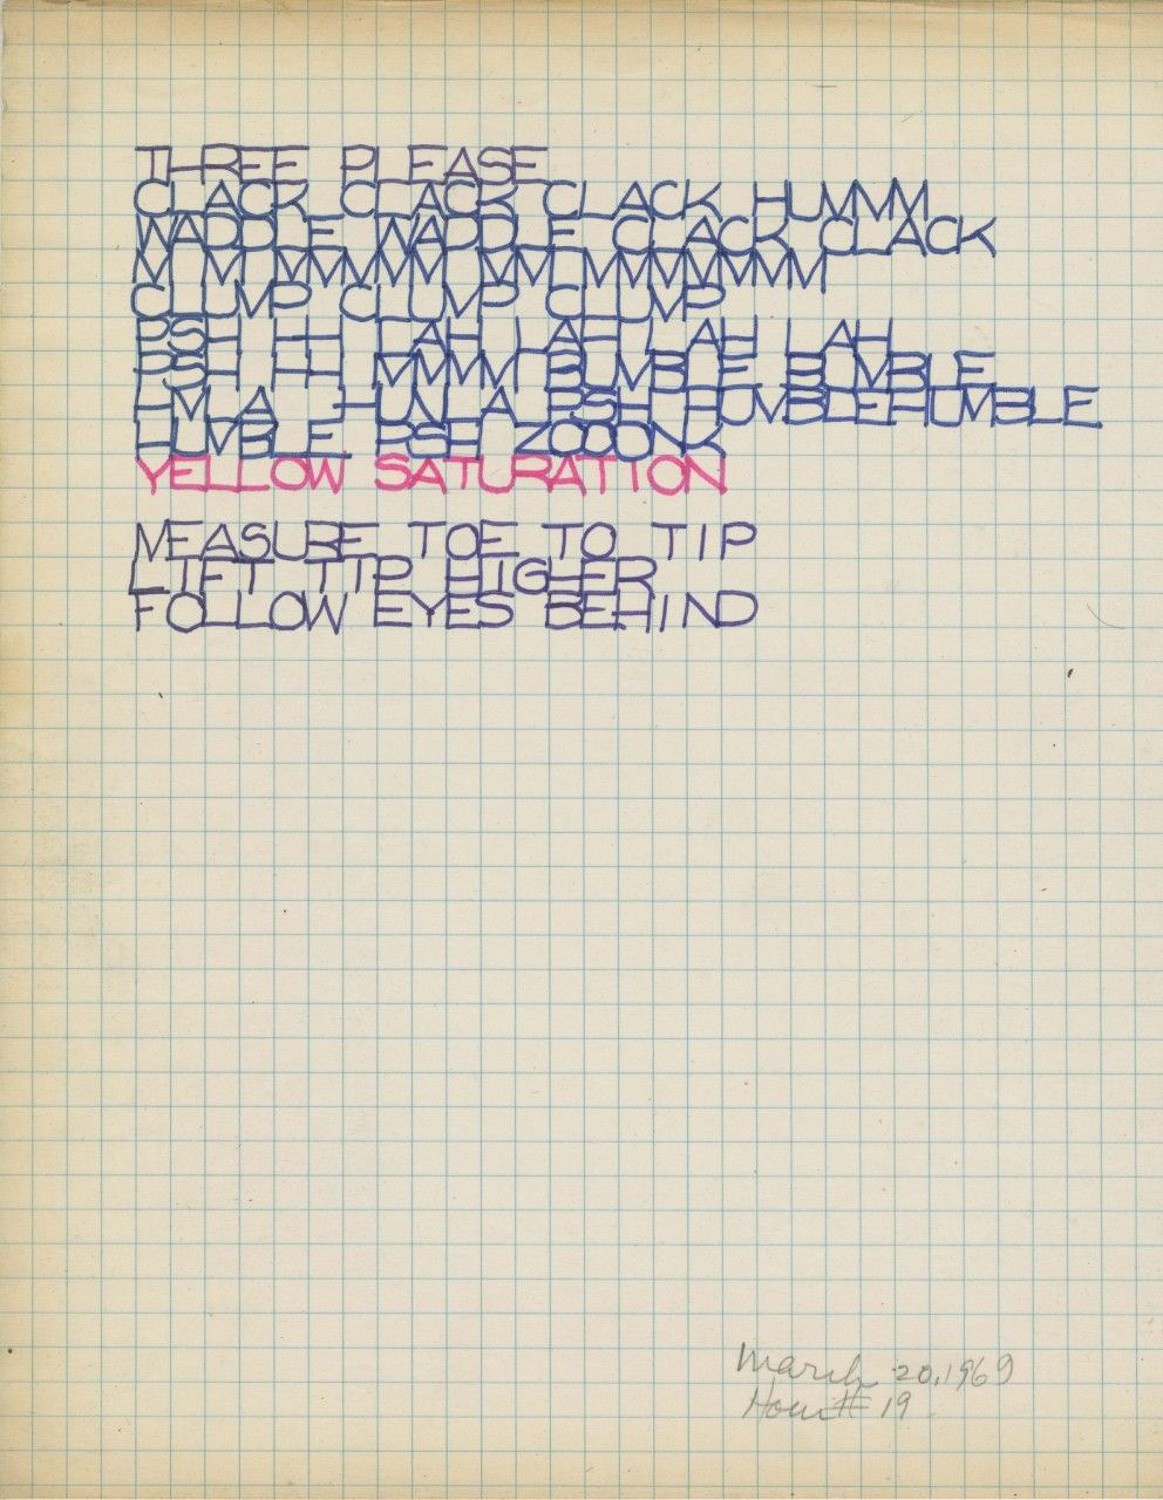 THREE PLEASE
CLACK CLACK CLACK HUMMM
WADDLE WADDLE CLACK CLACK
CLUMP CLUMP CLUMP
PSH HH LAH LAH LAH LAH
PSH HH MMMM BUMBLE BUMBLE
PSH HUMBLEHUMBLE
HUMBLE PSH ZOOONK
YELLOW SATURATION
MEASURE TOE TO TIP
LIFT TIP HIGHER
FOLLOW EYES BEHIND
March 20, 1969
Hour # 19